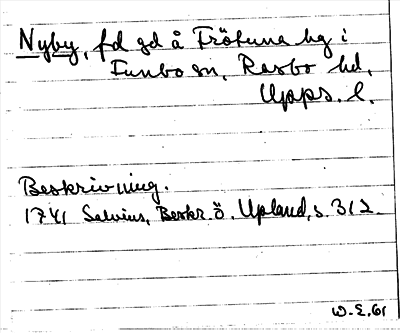 Nyby, fd gd å Frötuna hg i
Funbo sn, Rasbo hd,
Upps. l.
Beskrivning.
1741 Salvius, Beskr. ö. Upland, s. 312.
W.E. 61